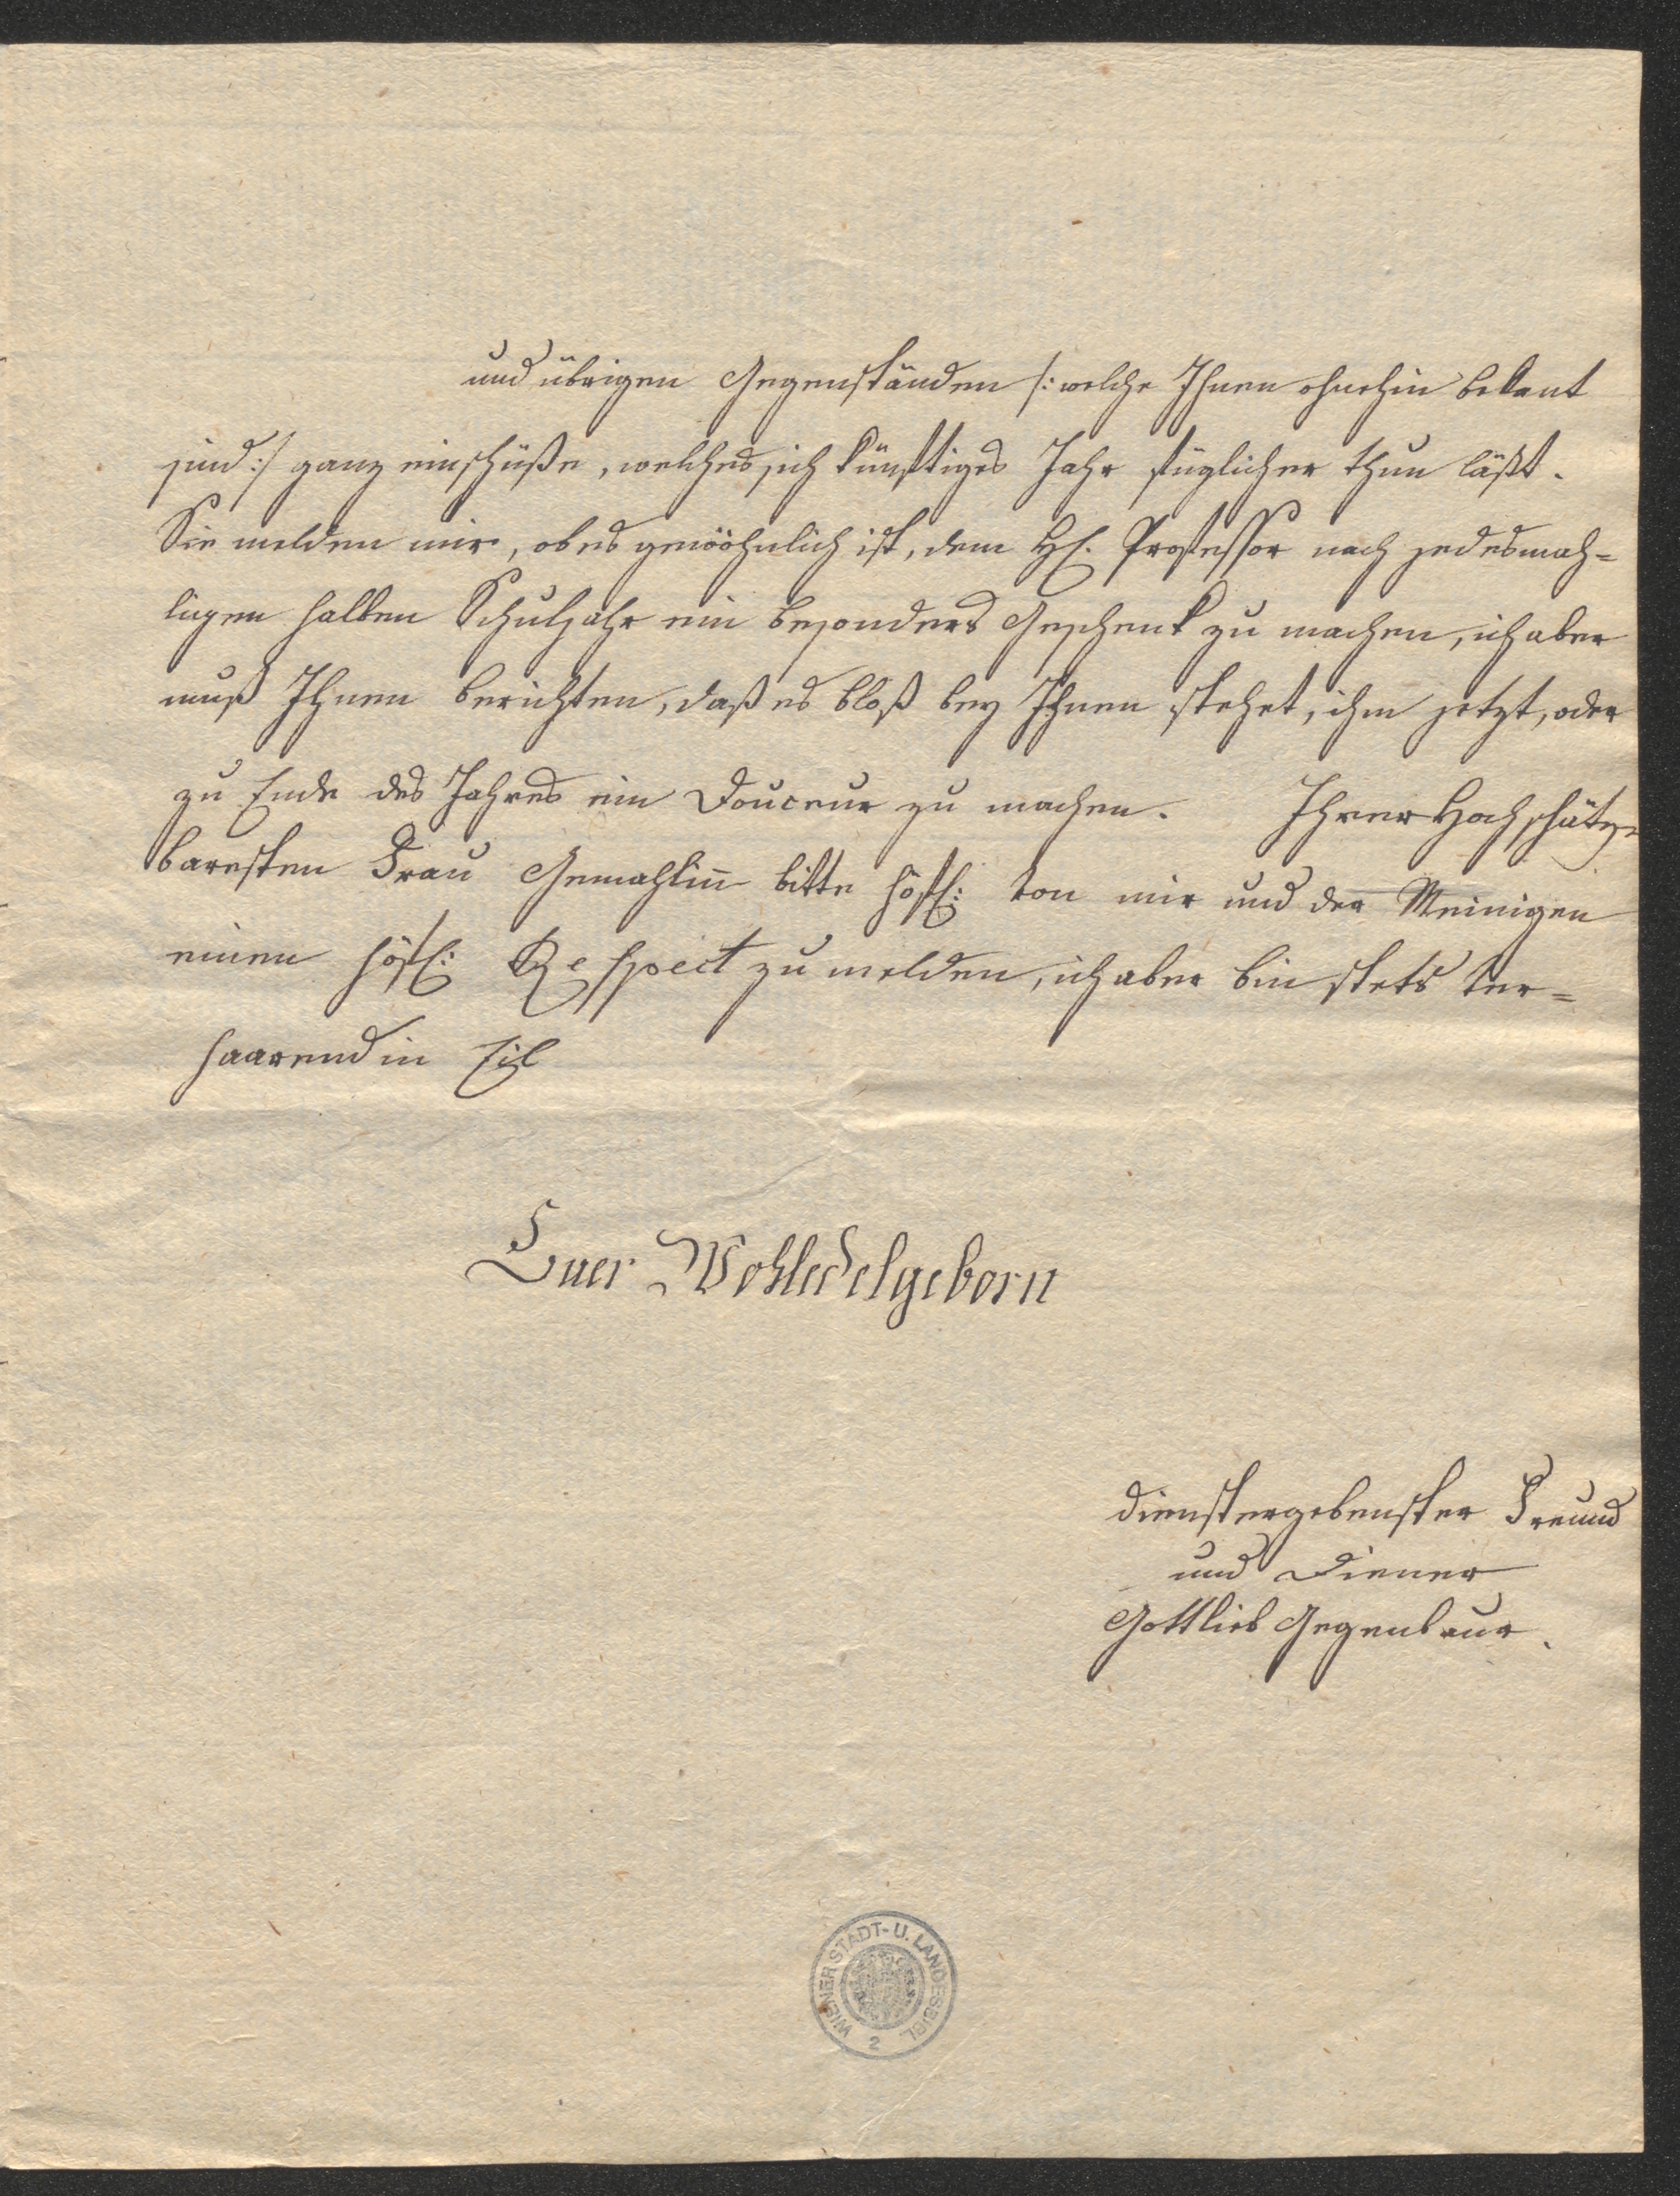 und übrigen Gegenständen /: welche Ihnen ohnehin bekant
sind :/ ganz einschüße, welches sich künftiges Jahr füglicher thun läßt.
Sie melden mir, ob es gewöhnlich ist, dem H. Professor nach jedesmah=
ligen halben Schuljahr ein besonders Geschenk zu machen, ich aber
muß Ihnen berichten, daß es bloß bey Ihnen stehet, ihm jetzt, oder
zu Ende des Jahres ein Douceur zu machen. Ihrer Hochschätz=
baresten Frau Gemahlin̄ bitte höfl: von mir und der Meinigen
einen höfl: Respect zu melden, ich aber bin stets ver=
haarend in Eil
Euer Wohledelgeborn
dienstergebenster Freund
und Diener
Gottlieb Gegenbaur.
WIENER STADT- U. LANDESBIBL.
2